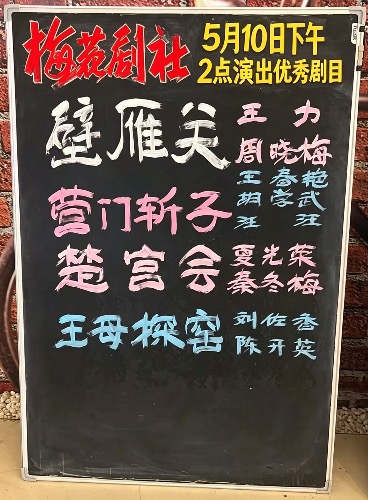 梅苑剧社
5月10日下午
2点演出优秀剧目
壁雁关
王力
周晓梅
王春艳
营门斩子
胡学武
汪江
楚宫会
夏光荣
秦冬梅
王母探窑
刘佐香
陈开英